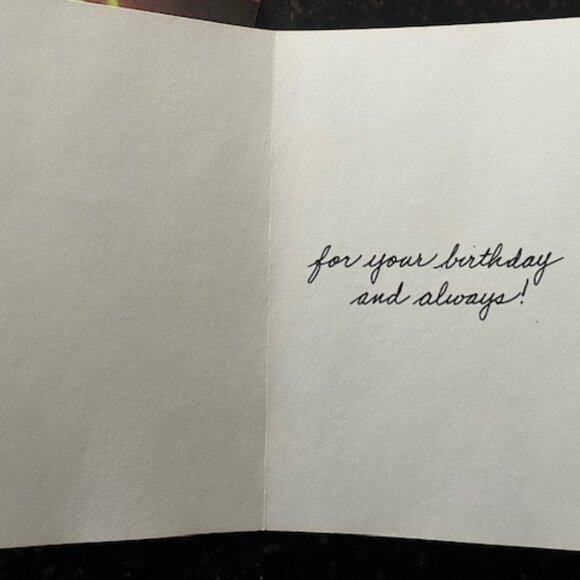 for your birthday
and always!